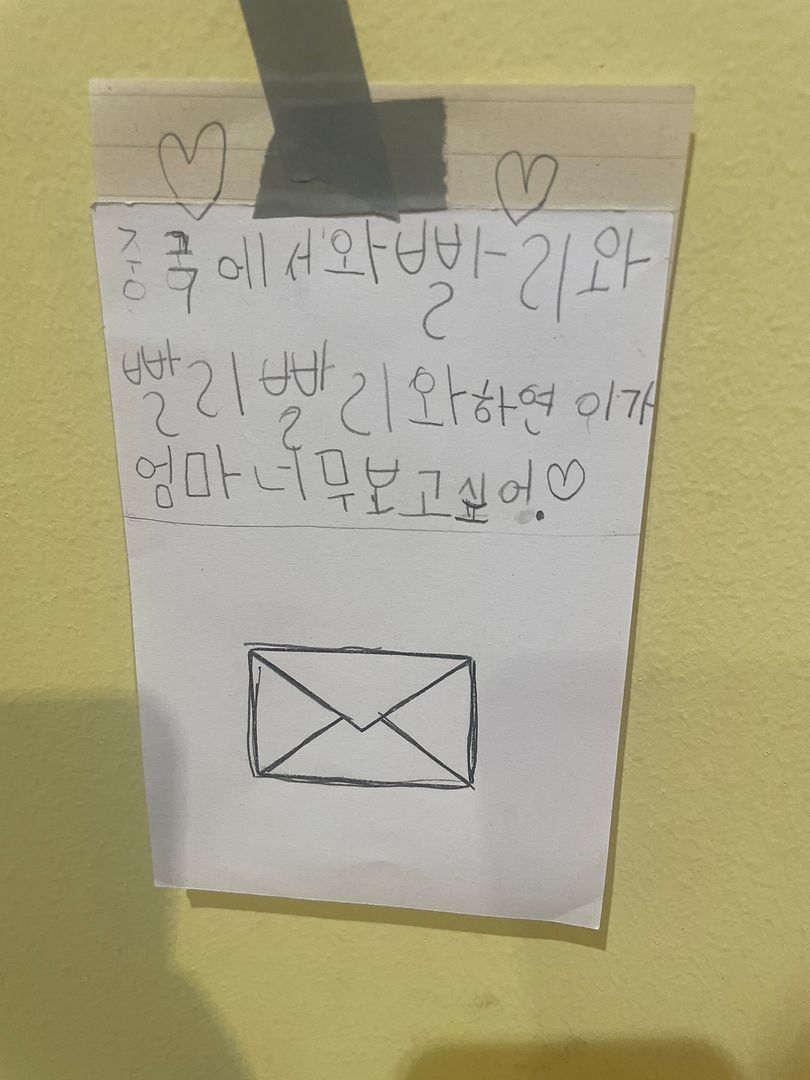 중국에서와 빨리와
빨리 빨리 와 하연이가
엄마 너무 보고 싶어.♡